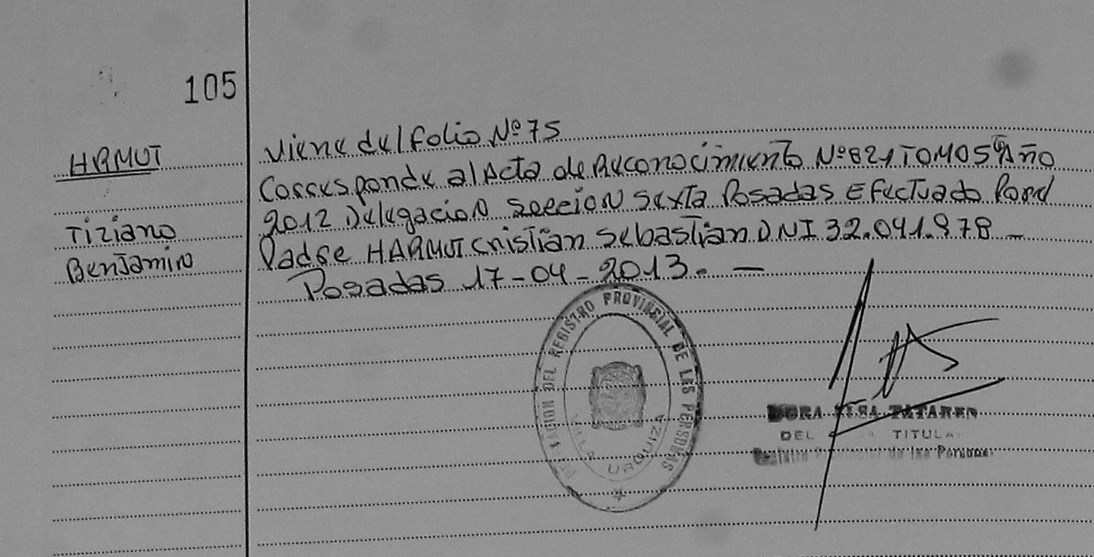 105
HARMUT
Tiziano
Benjamin
Viene del folio Nº 75
Corresponde al Acta de Reconocimiento Nº 821 TOMO 5º Año
2012 Delegacion seccion sexta Posadas Efectuado Por el
Padre HARMUT Cristian Sebastian DNI 32.041.978 -
Posadas 17-04-2013. -
DEL REGISTRO PROVINCIAL DE LAS PERSONAS
VILLA URQUIZA
DORA ELSA
DEL TITULA
Registro de las Personas